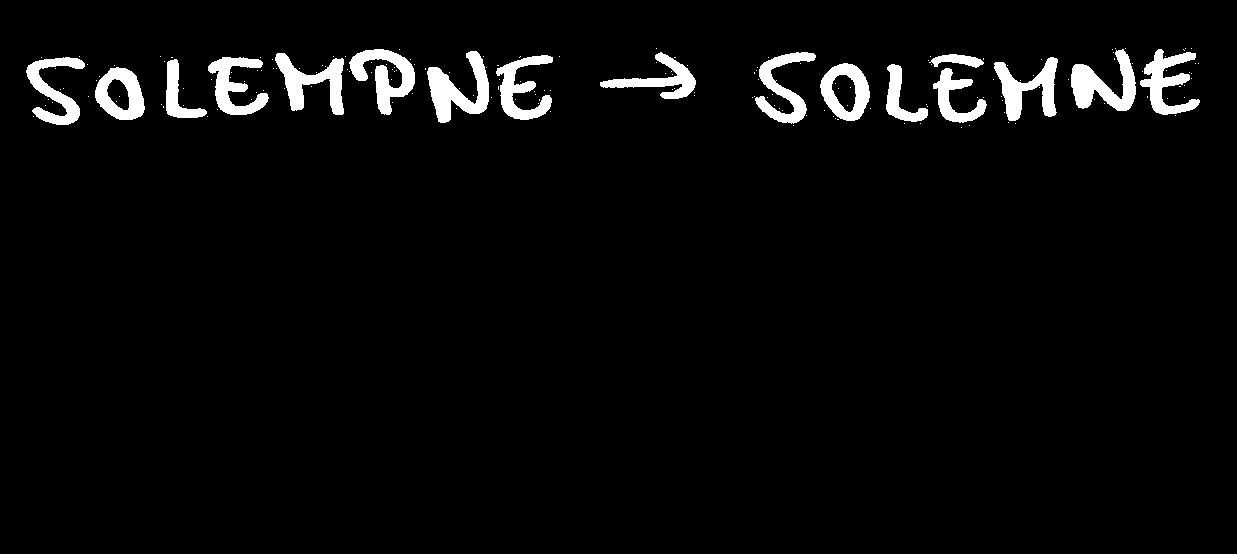 SOLEMPNE → SOLEMNE